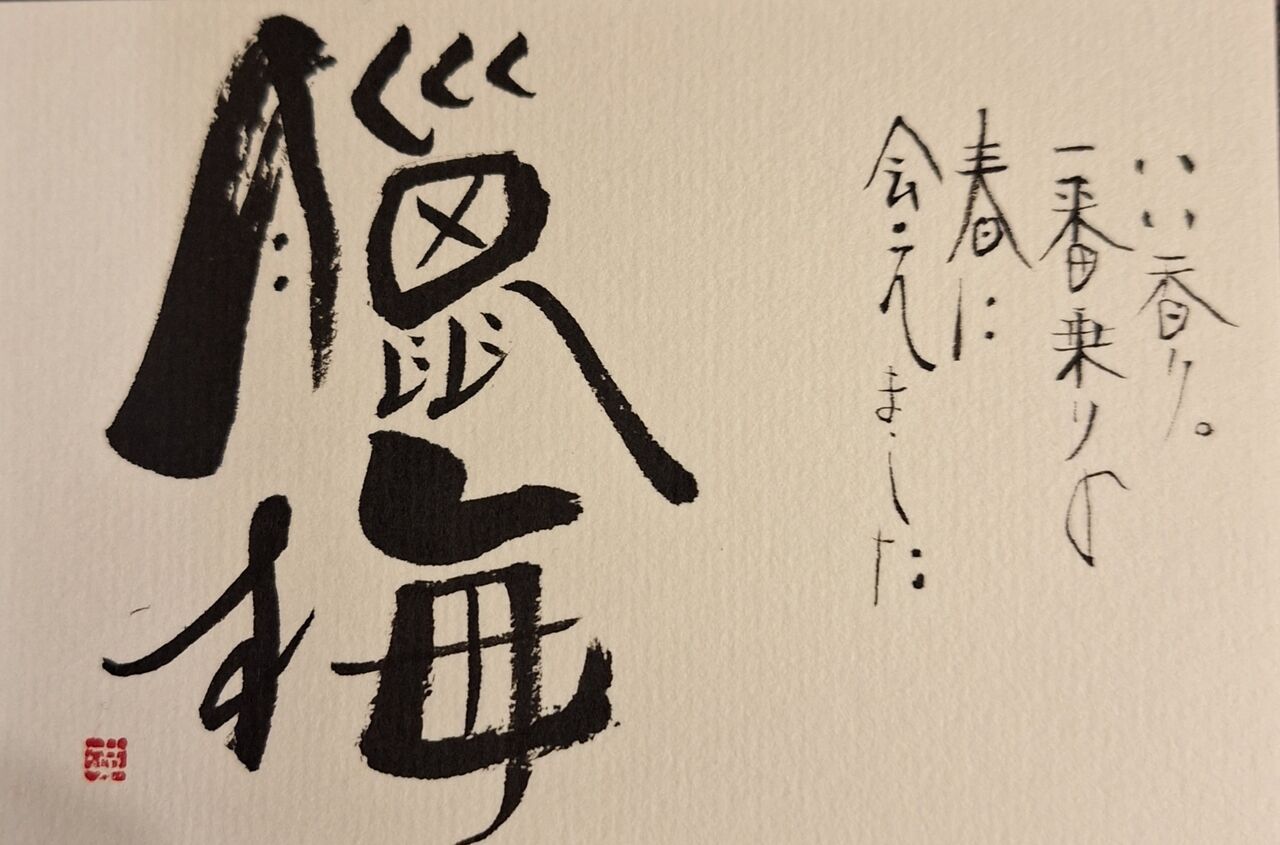 いい香り。
一番乗りの
春に
会えました
臘梅